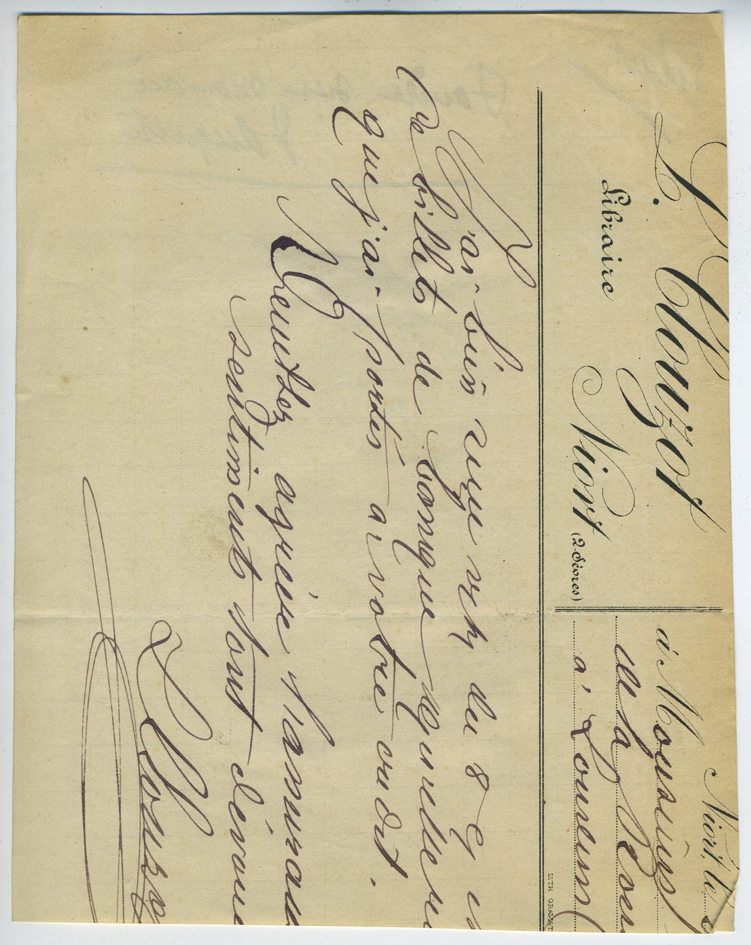 L. Clouzot
Libraire
Niort (2 Sèvres)
Niort, le
à Monsieur
de la
à Loudun
J'ai bien reçu du 8 c,
de billets de banque
que j'ai portés à votre crédit.
Veuillez agréer
sentiments tout dévoué
L Clouzot
LITH.